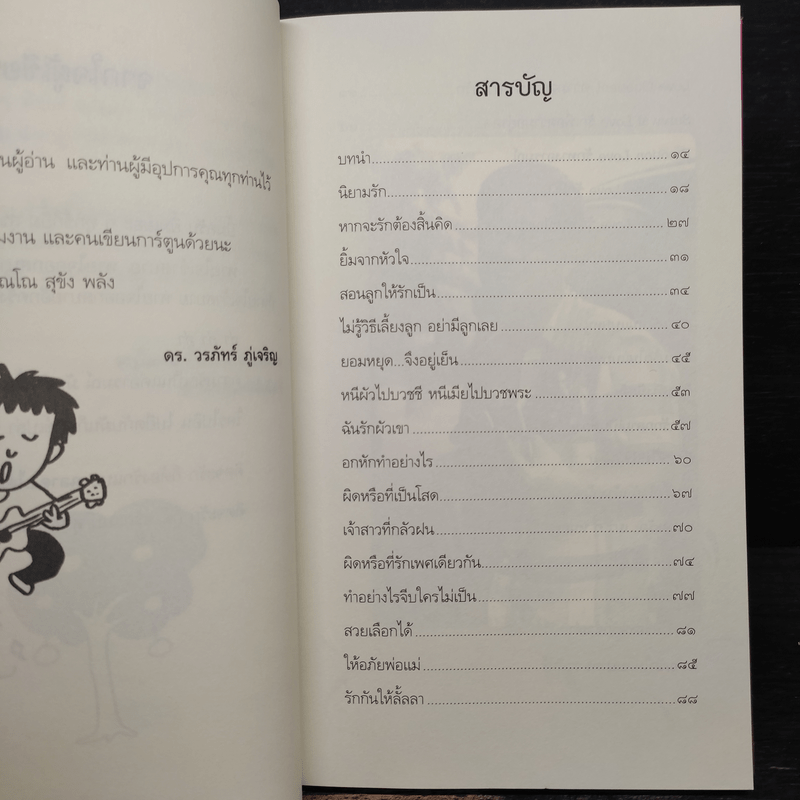 นผู้อ่าน และท่านผู้มีอุปการคุณทุกท่านไว้
มงาน และคนเขียนการ์ตูนด้วยนะ
ณโณ สุขัง พลัง
ดร. วรภัทร์ ภู่เจริญ
สารบัญ
บทนำ ๑๔
นิยามรัก ๑๘
หากจะรักต้องสิ้นคิด ๒๗
ยิ้มจากหัวใจ ๓๑
สอนลูกให้รักเป็น ๓๔
ไม่รู้วิธีเลี้ยงลูก อย่ามีลูกเลย ๔๐
ยอมหยุด...จึงอยู่เย็น ๔๕
หนีผัวไปบวชชี หนีเมียไปบวชพระ ๕๓
ฉันรักผัวเขา ๕๗
อกหักทำอย่างไร ๖๐
ผิดหรือที่เป็นโสด ๖๗
เจ้าสาวที่กลัวฝน ๗๐
ผิดหรือที่รักเพศเดียวกัน ๗๔
ทำอย่างไรจีบใครไม่เป็น ๗๗
สวยเลือกได้ ๘๑
ให้อภัยพ่อแม่ ๘๕
รักกันให้ลั้ลลา ๘๘